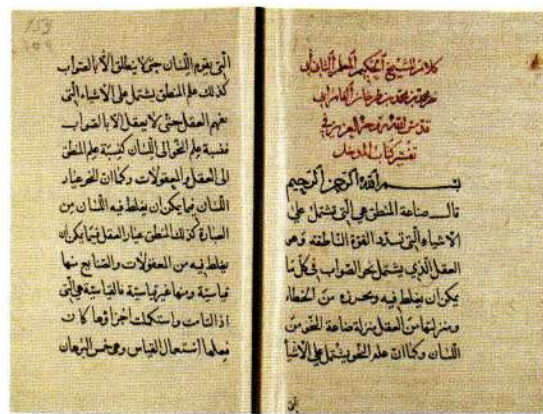 كلام الشيخ الحكيم المعلم الثاني أبي
محمد بن طرخان الفارابي
قدس الله روحه العزيز في
تفسير كتاب المدخل
بسم الله الرحمن الرحيم
قال صناعة المنطق هي التي تشتمل على
الاشياء التي تسدد القوة الناطقة وهو
العقل الذي يشتمل نحو الصواب في كل ما
يمكن ان يغلط فيه وتحرزه من الخطاء
ومنزلتها من العقل منزلة صناعة النحو من
اللسان وكما ان علم النحو يشتمل على الاشيا
153
التى يقوم اللسان حتى لا ينطلق الا بالصواب
كذلك علم المنطق يشتمل على الاشياء التى
تفهم العقل حتى لا يعقل الا بالصواب
فنسبة علم النحو الى اللسان كنسبة علم المنطق
الى العقل والمعقولات وكما ان النحو عيار
اللسان فيما يمكن ان يغلط فيه اللسان من
العبارة كذلك المنطق عيار العقل فيما يمكن ان
يغلط فيه من المعقولات والصنايع منها
قياسية ومنها غير قياسية فالقياسية هى التى
اذا التامت واستكملت اجزاؤها كان
فعلها استعمال القياس وهى خمس البرهان